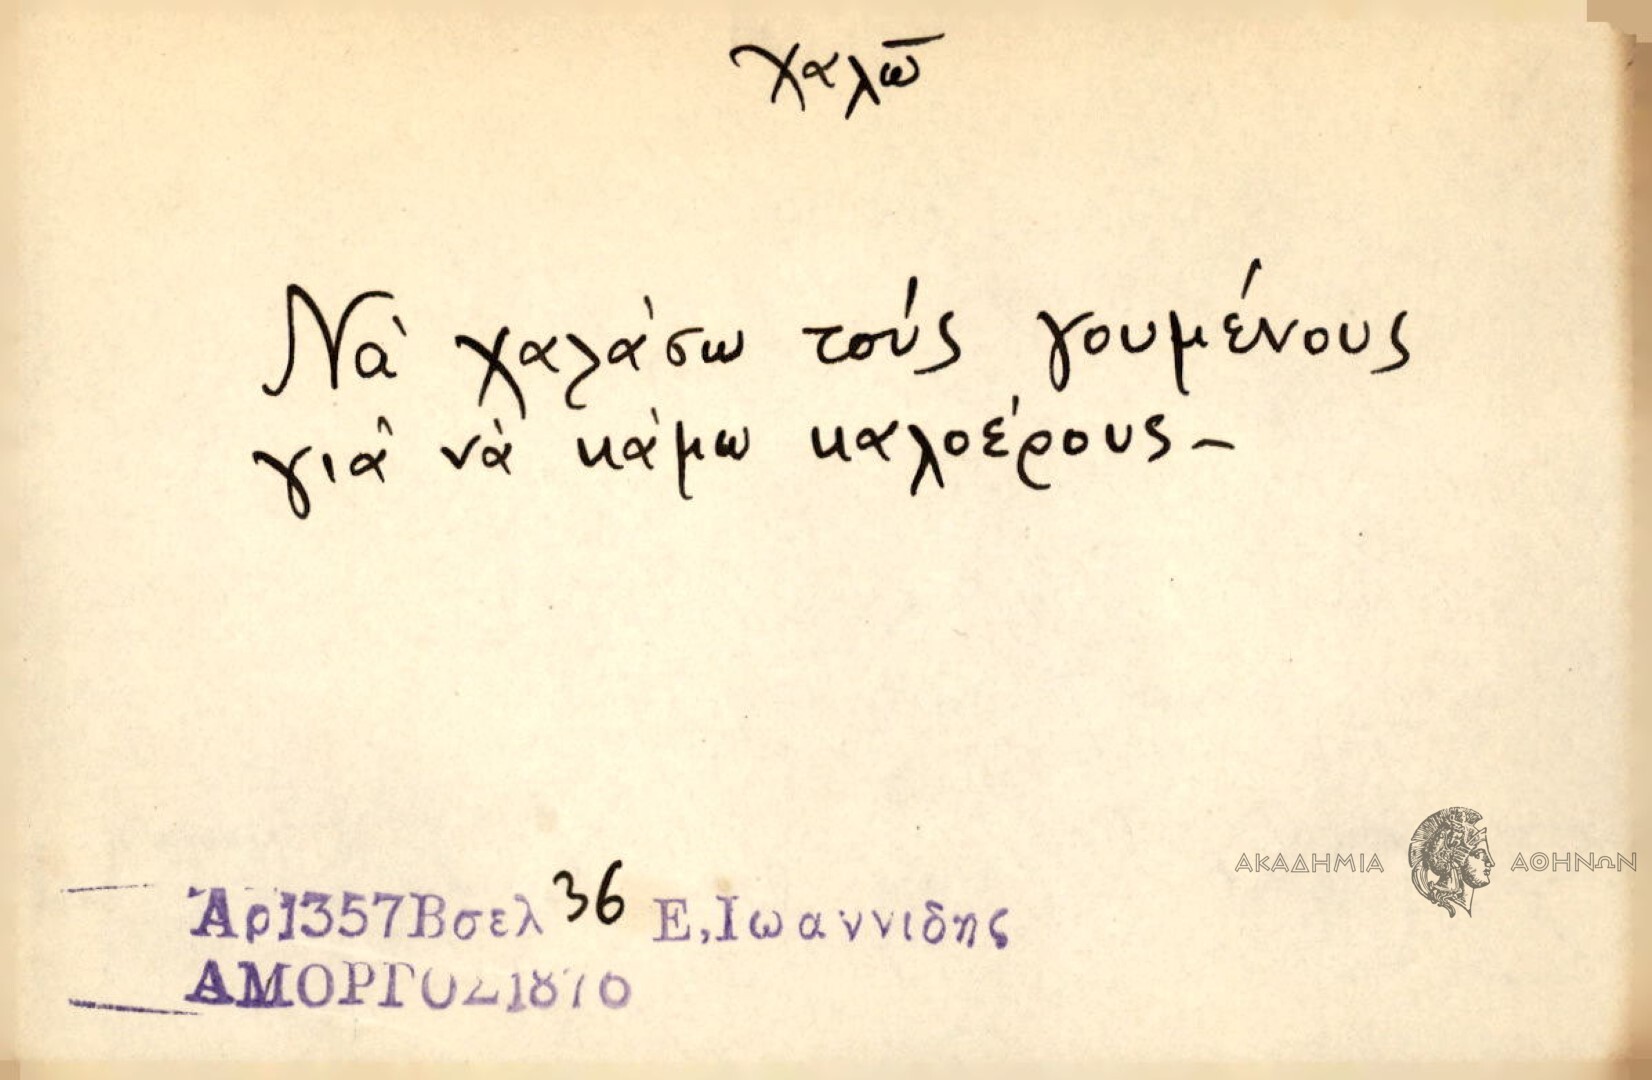 χαλῶ
Νὰ χαλάσω τούς γουμένους
γιὰ νὰ κάμω καλοέρους –
Ἀρ1357Βσελ 36 Ε,Ιωαννιδης
ΑΜΟΡΓΟΣ1876
ΑΚΑΔΗΜΙΑ ΑΘΗΝΩΝ